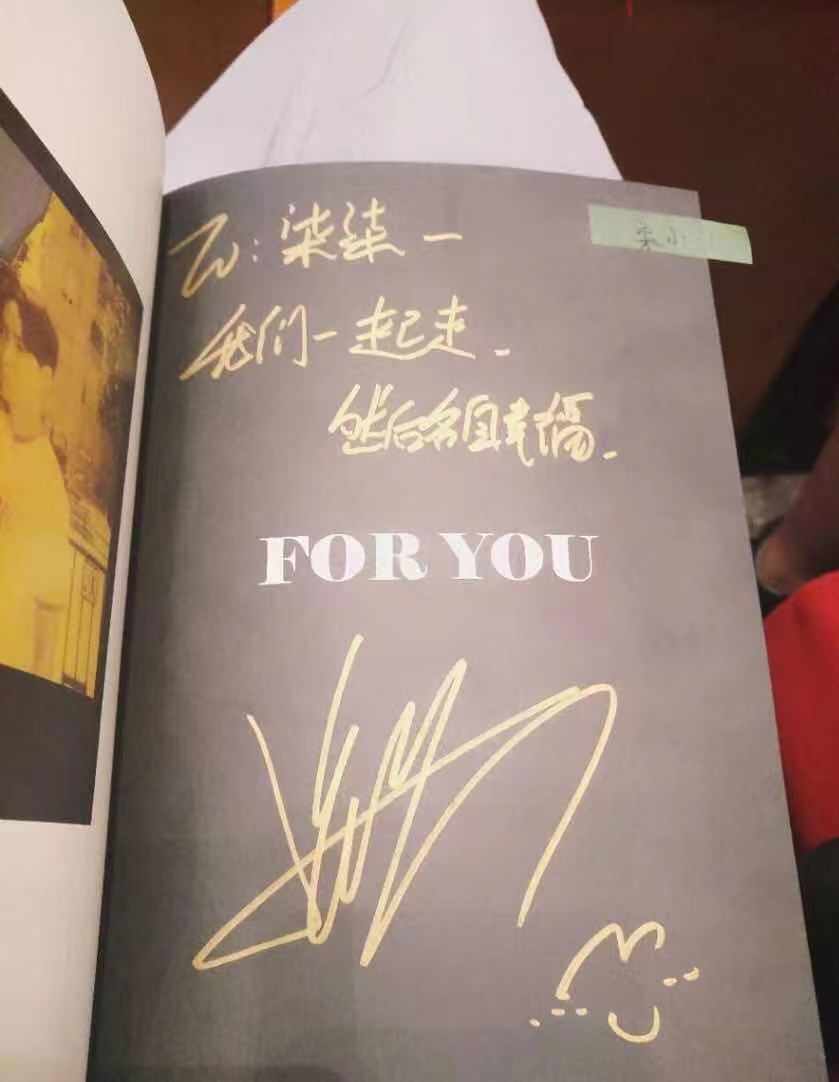 To: 柒柒一
我们一起走.
然后各自幸福.
FOR YOU